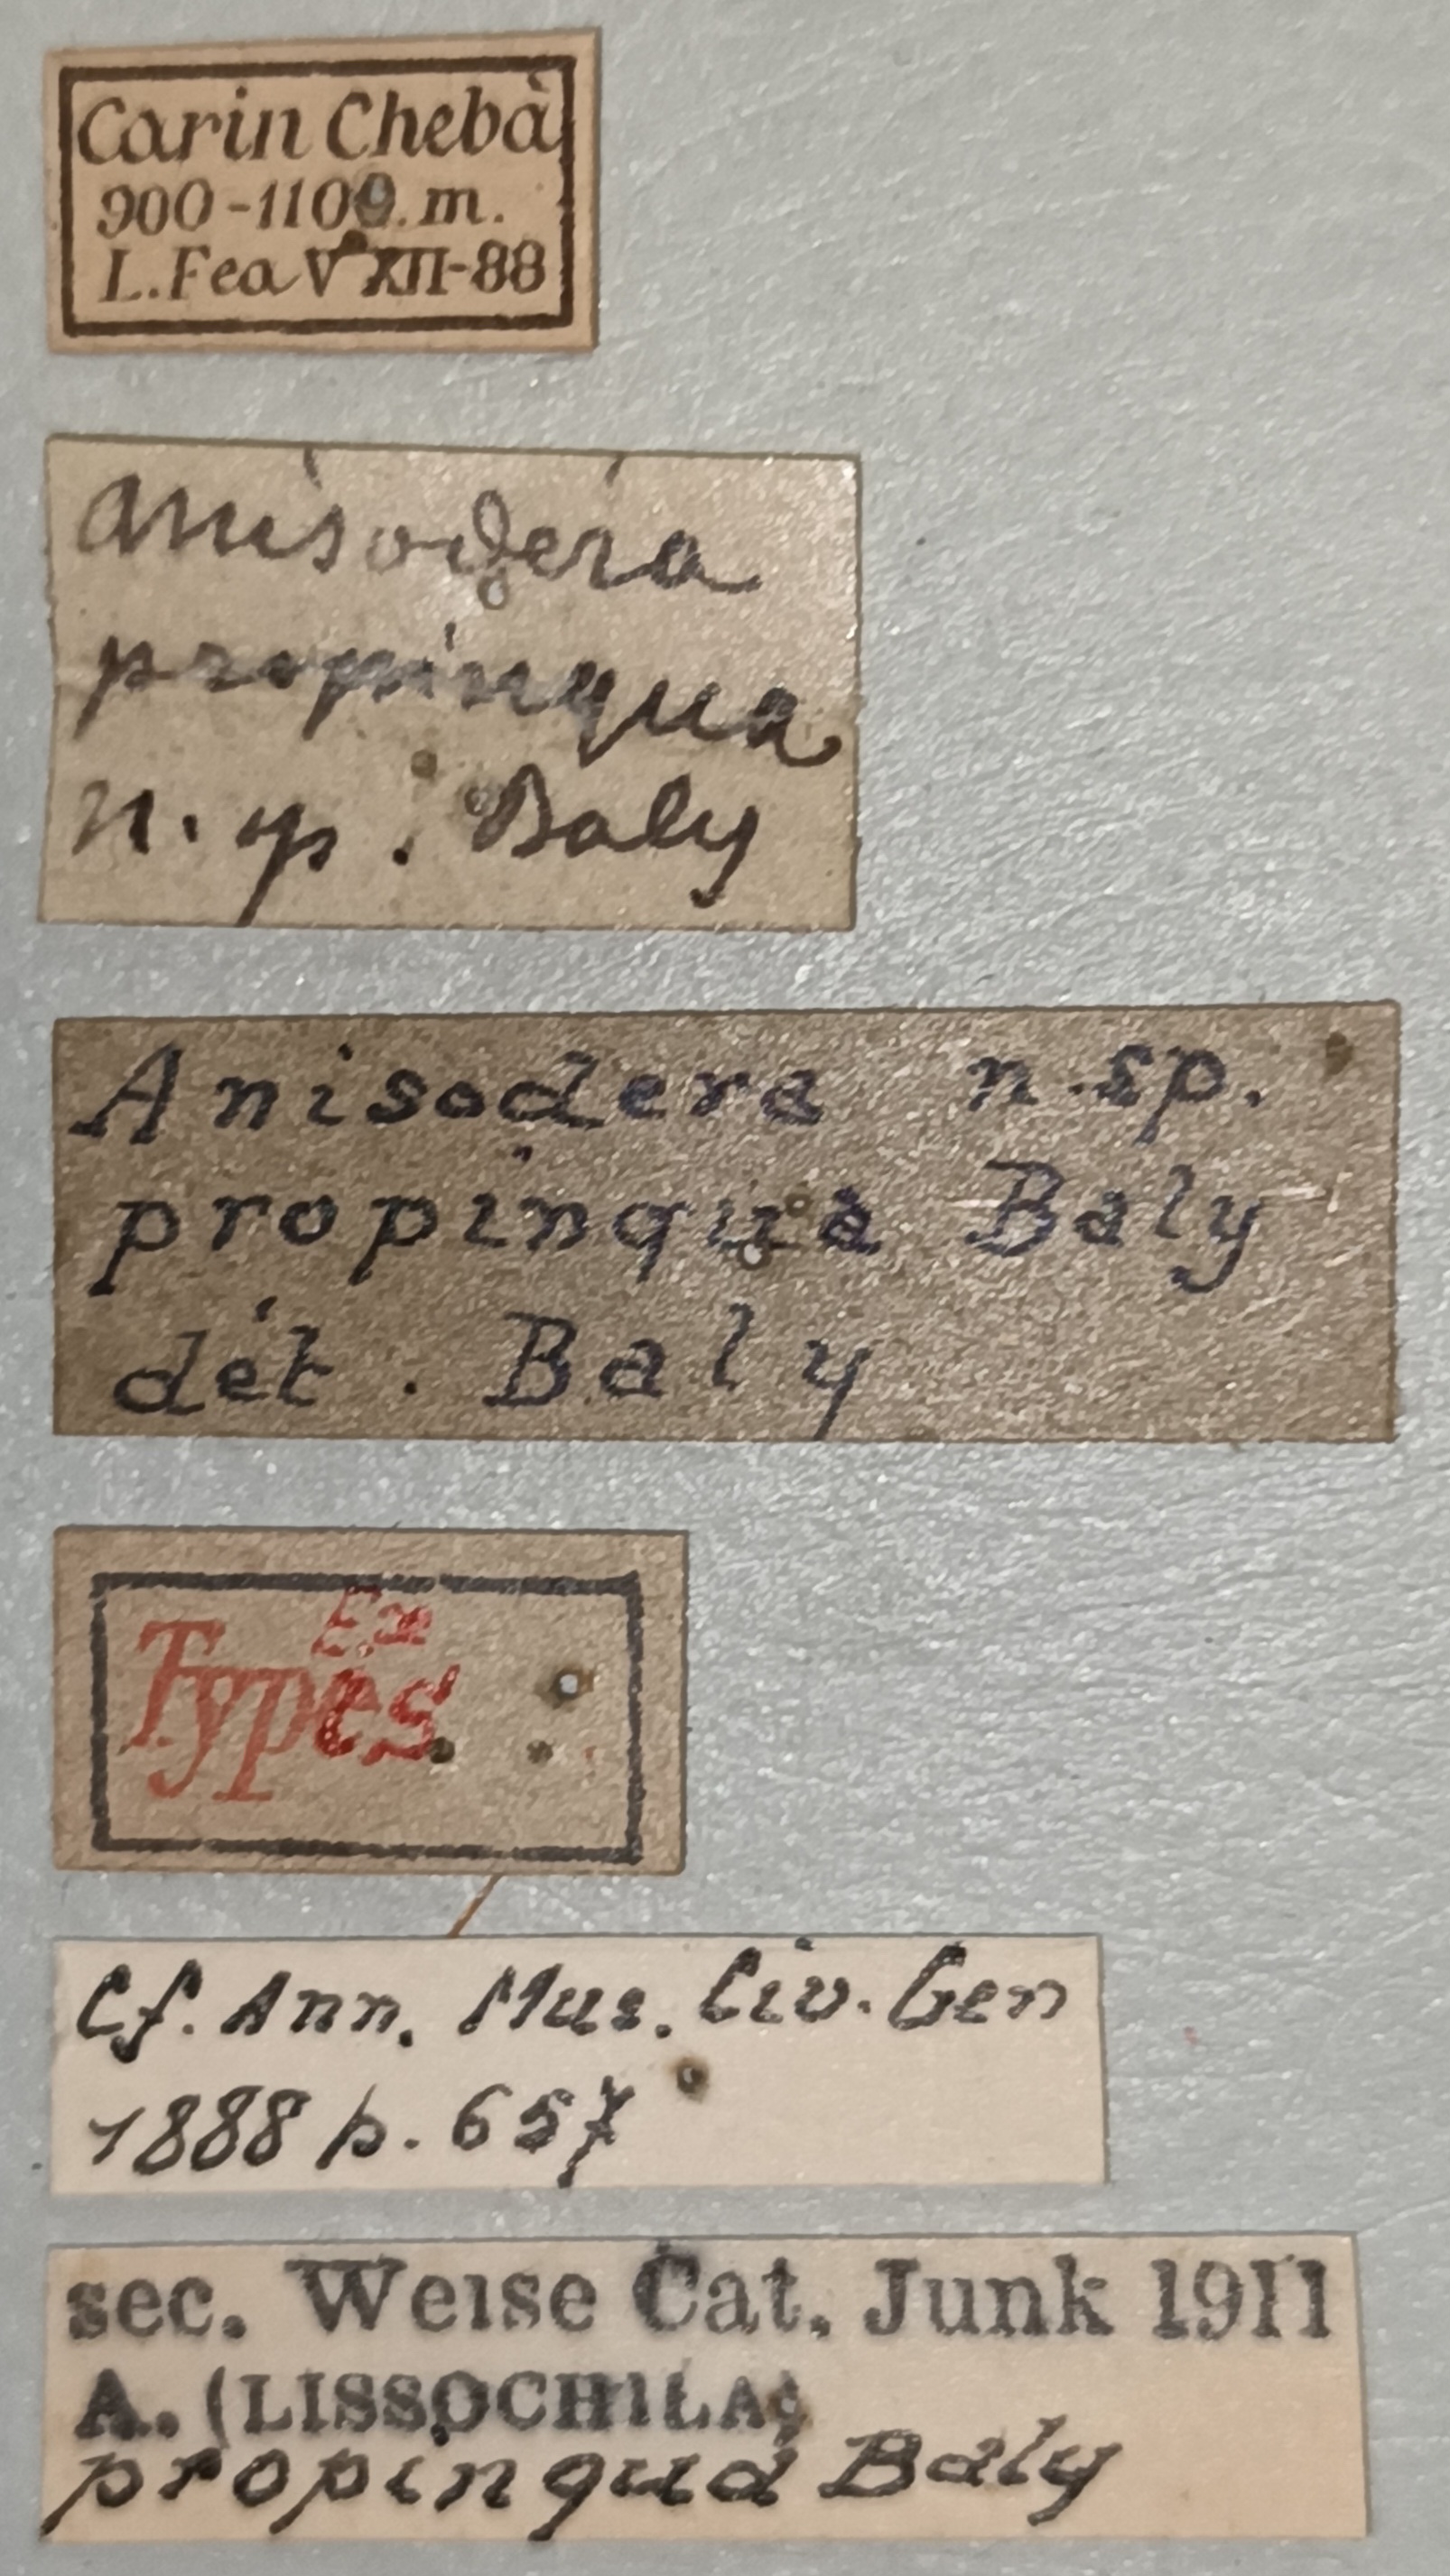 Carin Chebà
900-1100.m.
L.Fea V XII-88
Anisodera
propinqua
n. sp. Baly
Anisodera n.sp.
propinqua Baly
dét. Baly
Types
Cf. Ann. Mus. Civ. Gen
1888 p. 657
sec. Weise Cat. Junk 1911
A. (LISSOCHILA)
propinqua Baly